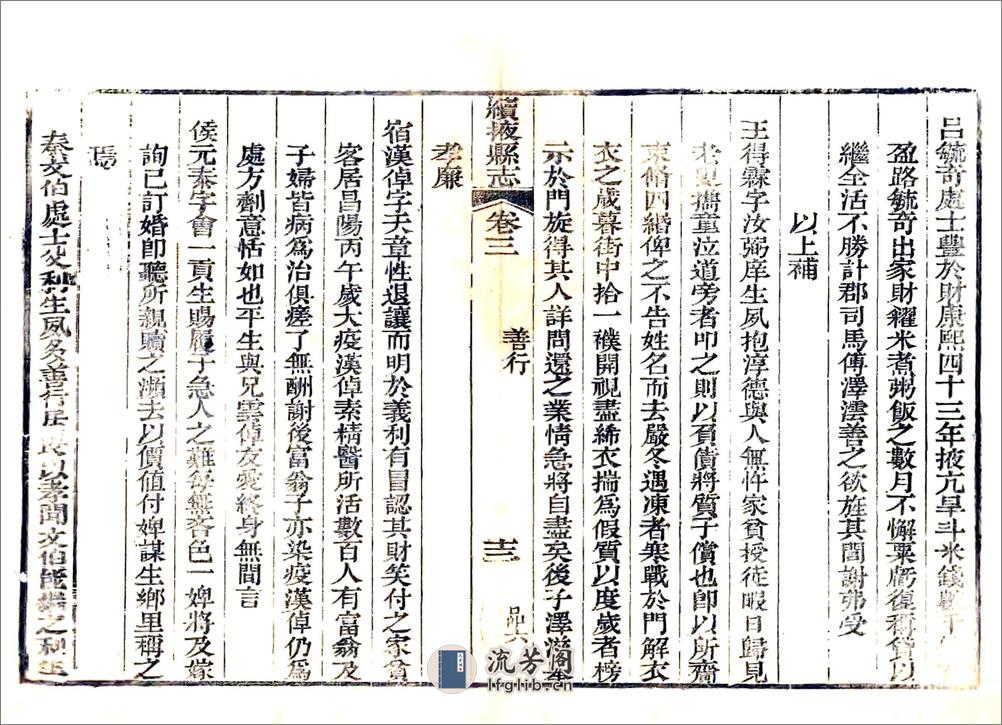 呂毓奇處士豐於財康熙四十三年掖亢旱斗米錢
盈路毓奇出家財糴米煮粥飯之數月不懈粟虧復稱貸以
繼全活不勝計郡司馬傅澤澐善之欲旌其閭謝弗受
以上補
王得霖字汝弼庠生夙抱淳德與人無忤家貧授徒暇日歸見
老叟攜童泣道旁者叩之則以負債將質子償也卽以所齎
束脩四緡俾之不告姓名而去嚴冬遇凍者寒戰於門解衣
衣之歲暮街中拾一襆開視盡絺衣揣爲假質以度歲者榜
示於門旋得其人詳問還之業情急將自盡矣後子澤遊奉
孝廉
續掖縣志 卷三 善行 十三
宿漢倬字天章性退讓而明於義利有冒認其財笑付之家貧
客居昌陽丙午歲大疫漢倬素精醫所活數百人有富翁及
子婦皆病爲治俱瘥了無酬謝後富翁子亦染疫漢倬仍爲
處方劑意恬如也平生與兄雲倬友愛終身無間言
侯元泰字會一貢生賜履子急人之難每無吝色一婢將及嫁
詢已訂婚卽聽所親贖之瀕去以價值付婢謀生鄉里稱之
焉
秦文伯處士父利生夙多善行 聞文伯 之利生
流芳阁
lfglib.cn